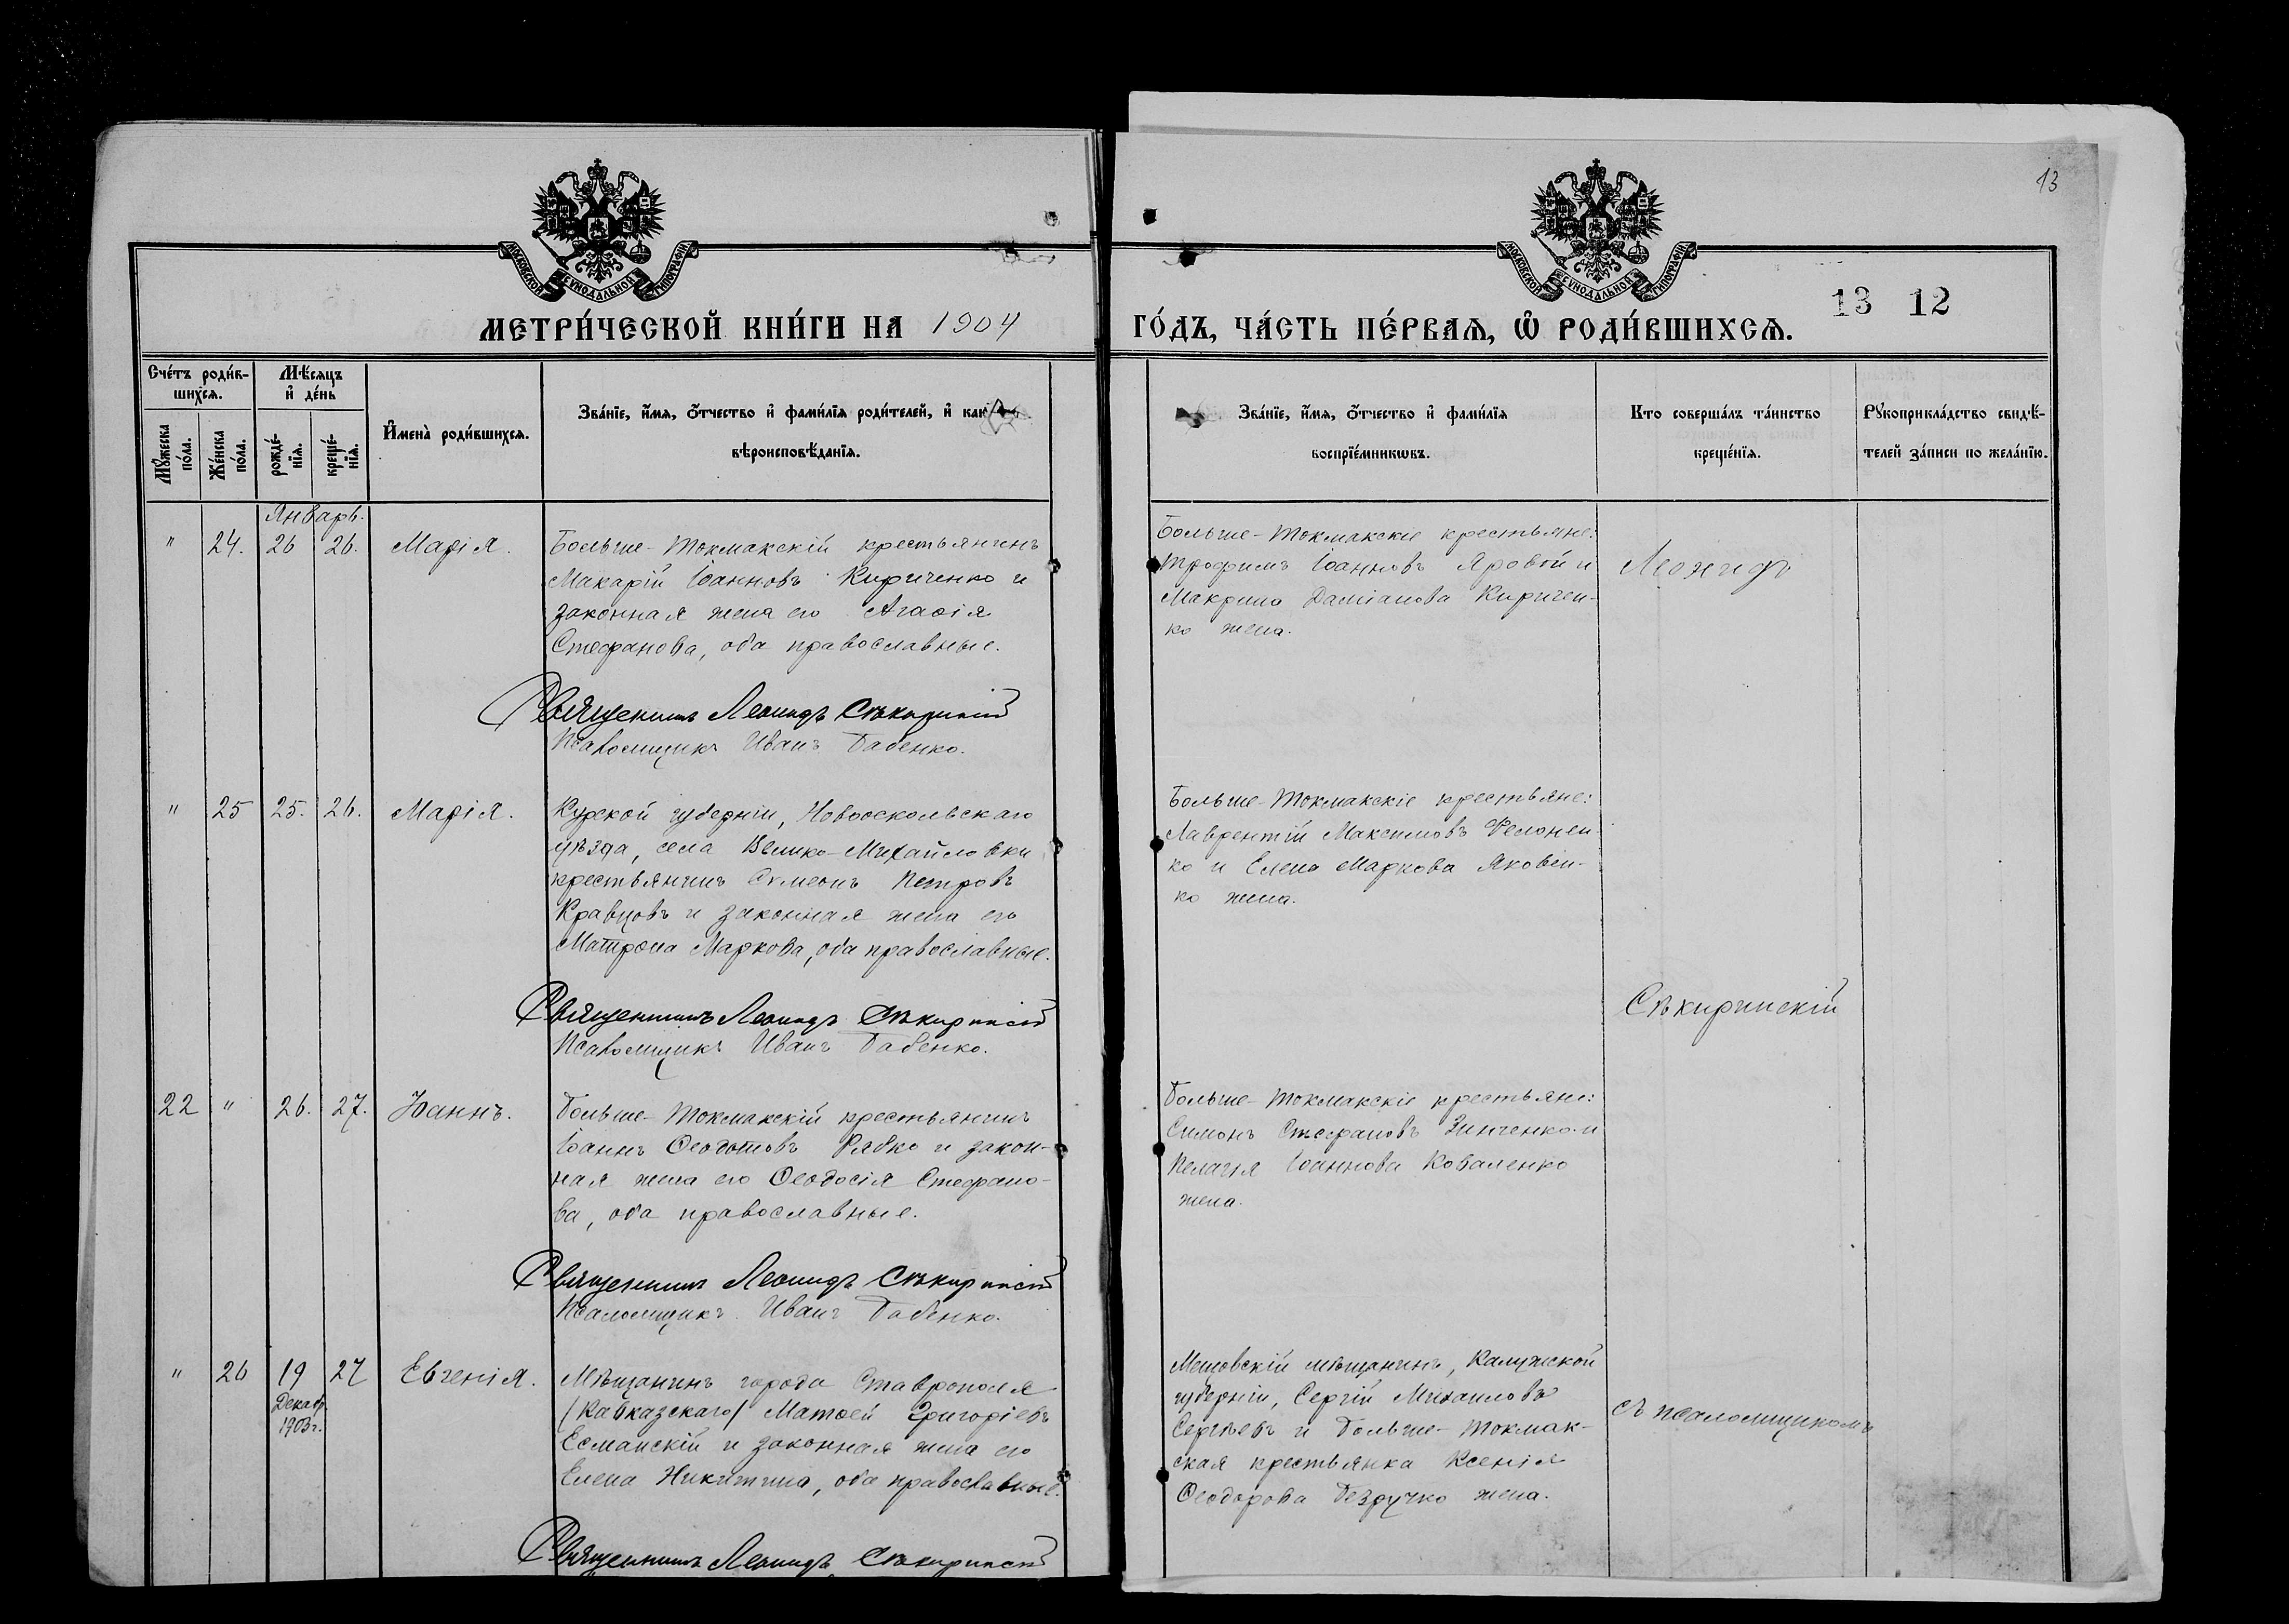 13
МОСКОВСКОЙ СѴНОДАЛЬНОЙ ТИПОГРАФІИ
МОСКОВСКОЙ СѴНОДАЛЬНОЙ ТИПОГРАФІИ
13 12
МЕТРИ́ЧЕСКОЙ КНИ́ГИ НА 1904
ГО́ДЪ, ЧА́СТЬ ПЕ́РВАѦ, Ѡ҆ РОДИ́ВШИХСѦ.
Сче́тъ роди́в-
шихсѧ.
Мꙋ́жеска по́ла.
Же́нска по́ла.
Мѣ́сяцъ
и҆ де́нь
рожде́-
нїѧ.
креще́-
нїѧ.
И҆мена̀ роди́вшихсѧ.
Зва́нїе, и҆́мѧ, ѻ҆́тчество и҆ фами́лїѧ роди́телей, и҆ как
вѣроисповѣ́данїѧ.
Зва́нїе, и҆́мѧ, ѻ҆́тчество и҆ фами́лїѧ
воспрїе́мникѡвъ.
Кто соверша́лъ та́инство
креще́нїѧ.
Рꙋкоприкла́дство свидѣ́-
телей за́писи по жела́нїю.
Январь.
" 24. 26 26. Марія.
Больше-Токмакскій крестьянинъ
Макарій Іоанновъ Кириченко и
законная жена его Агаѳія
Стефанова, оба православные.
Священникъ Леонидъ Сѣкиринскій
Псаломщикъ Иванъ Бабенко.
Больше-Токмакскіе крестьяне:
Трофимъ Іоанновъ Яровой и
Макрина Даміанова Киричен-
ко жена.
Леонидъ
" 25 25. 26. Марія.
Курской губерніи, Новооскольскаго
уѣзда, села Велико-Михайловки
крестьянинъ Симеонъ Петровъ
Кравцовъ и законная жена его
Матрона Маркова, оба православные.
Священникъ Леонидъ Сѣкиринскій
Псаломщикъ Иванъ Бабенко.
Больше-Токмакскіе крестьяне:
Лаврентій Максимовъ Филонен-
ко и Елена Маркова Яковен-
ко жена.
Сѣкиринскій
22 " 26. 27. Іоаннъ.
Больше-Токмакскій крестьянинъ
Іоаннъ Ѳеодотовъ Рябко и закон-
ная жена его Ѳеодосія Стефано-
ва, оба православные.
Священникъ Леонидъ Сѣкиринскій
Псаломщикъ Иванъ Бабенко.
Больше-Токмакскіе крестьяне:
Симонъ Стефановъ Зинченко и
Пелагія Іоаннова Коваленко
жена.
" 26 19 27 Евгенія.
Декабр.
1903 г.
Мѣщанинъ города Ставрополя
(Кавказскаго) Матѳей Григоріевъ
Есманскій и законная жена его
Елена Никитина, оба православные.
Священникъ Леонидъ Сѣкиринскій
Мещовскій мѣщанинъ, Калужской
губерніи, Сергій Михаиловъ
Сергѣевъ и Больше-Токмак-
ская крестьянка Ксенія
Ѳеодорова Безручко жена.
съ псаломщикомъ